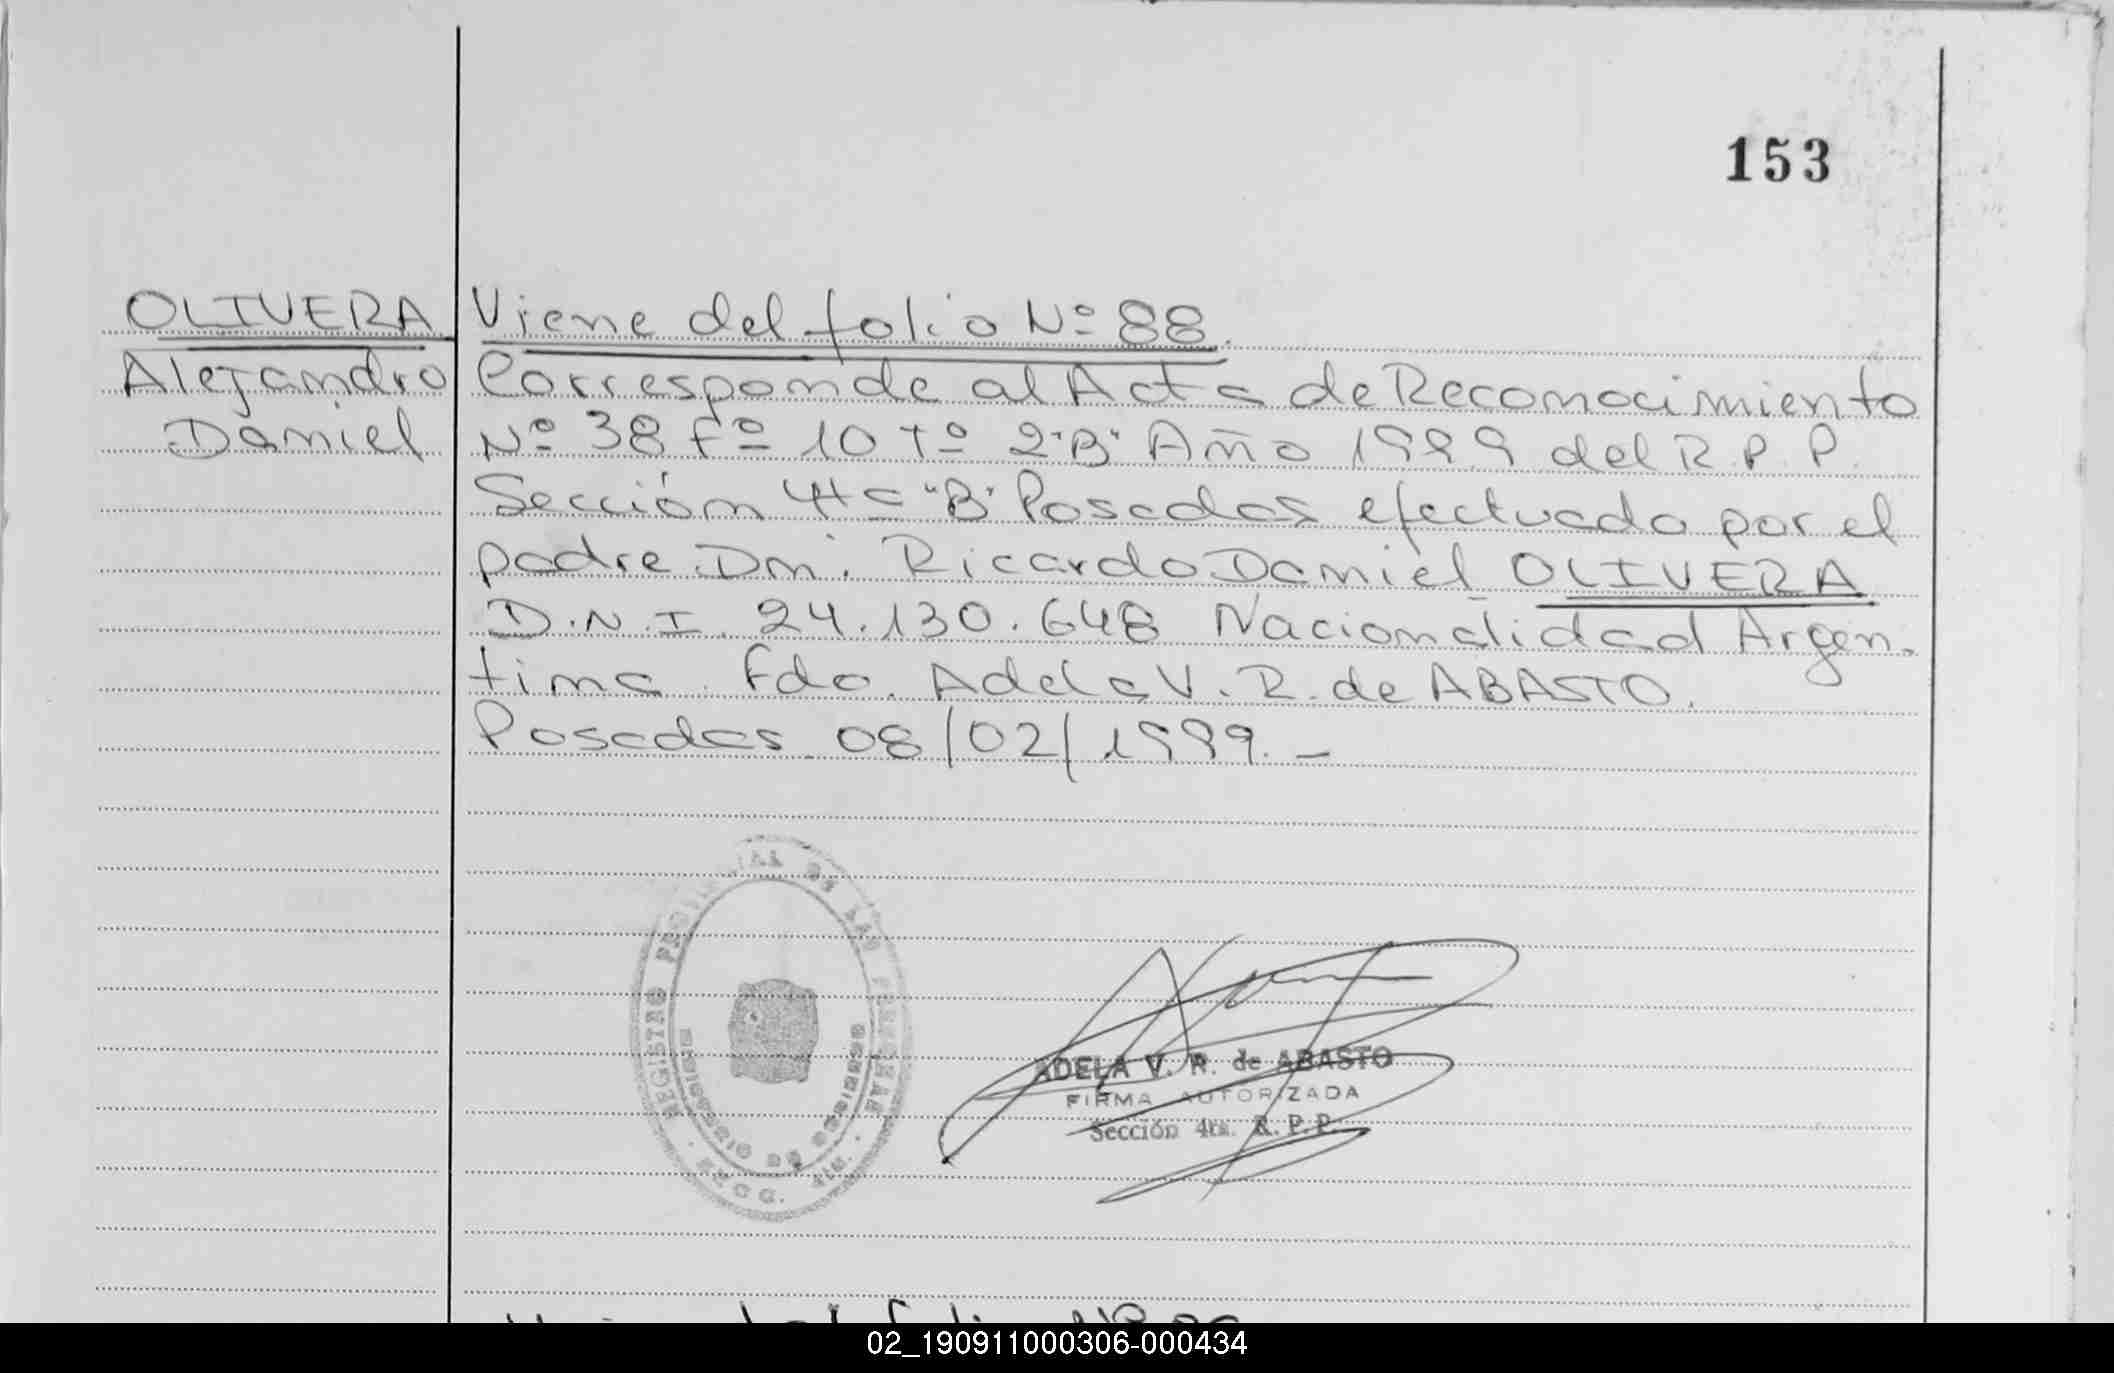 153
OLIVERA
Alejandro
Daniel
Viene del folio Nº 88.
Corresponde al Acta de Reconocimiento
Nº 38 Fº 10 Tº 2"B" Año 1999 del R.P.P.
Sección 4ta "B" Posadas efectuado por el
padre Dn. Ricardo Daniel OLIVERA
D.N.I. 24.130.648 Nacionalidad Argen-
tina. Fdo. Adela V. R. de ABASTO.
Posadas 08/02/1999.-
REGISTRO PROVINCIAL DE LAS PERSONAS
SECC. 4ta.
ADELA V. R. de ABASTO
FIRMA AUTORIZADA
Sección 4ta. R. P. P.
02_190911000306-000434